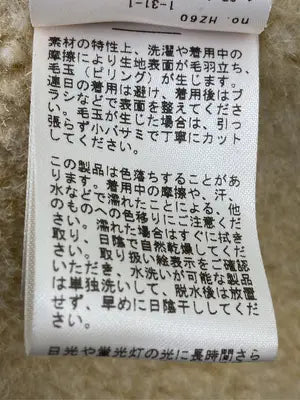 1-31-1
no. HZ60
素材の特性上、洗濯や着用中の
摩擦により生地表面が毛羽立ち、
毛玉（ピリング）が生じます。
連日の着用は避け、着用後はブ
ラシなどで表面を整えてくださ
い。毛玉が生じた場合は、引っ
張らず小バサミで丁寧にカット
してください。
この製品は色落ちすることがあ
ります。着用中の摩擦や、汗、
水などで濡れたことによる、他
のものへの色移りにご注意くだ
さい。濡れた場合はすぐに拭き
取り、日陰で自然乾燥してくだ
さい。取り扱い絵表示をご確認
いただき、水洗いが可能な製品
は単独洗いして、脱水後は放置
せず、早めに日陰干ししてくだ
さい。
日光や蛍光灯の光に長時間さら